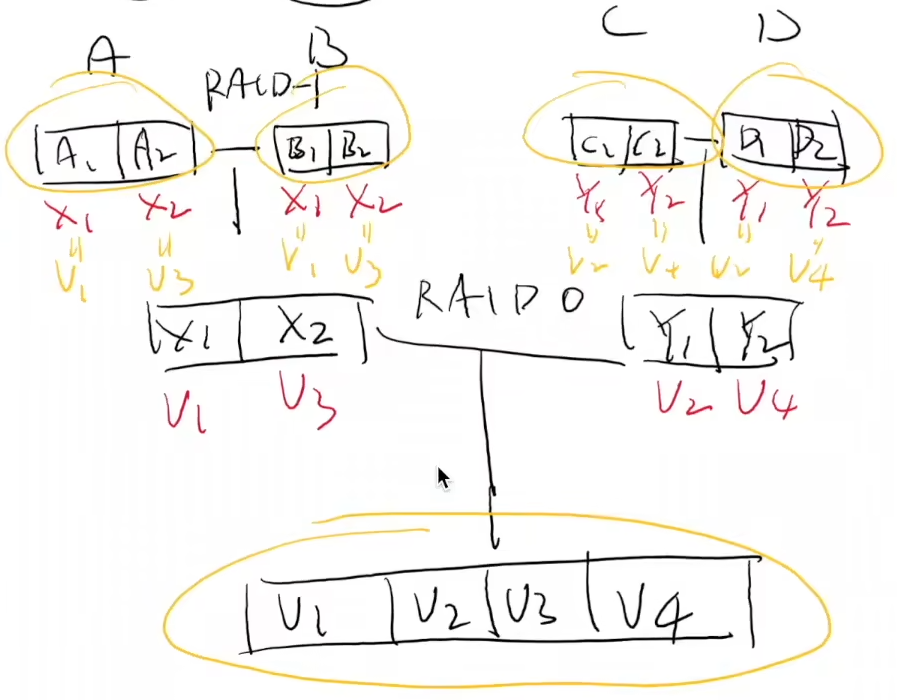 A B C D
RAID-1
A1 A2 B1 B2 C1 C2 D1 D2
X1 X2 X1 X2 Y1 Y2 Y1 Y2
V1 V3 V1 V3 V2 V4 V2 V4
RAID 0
X1 X2 Y1 Y2
V1 V3 V2 V4
V1 V2 V3 V4